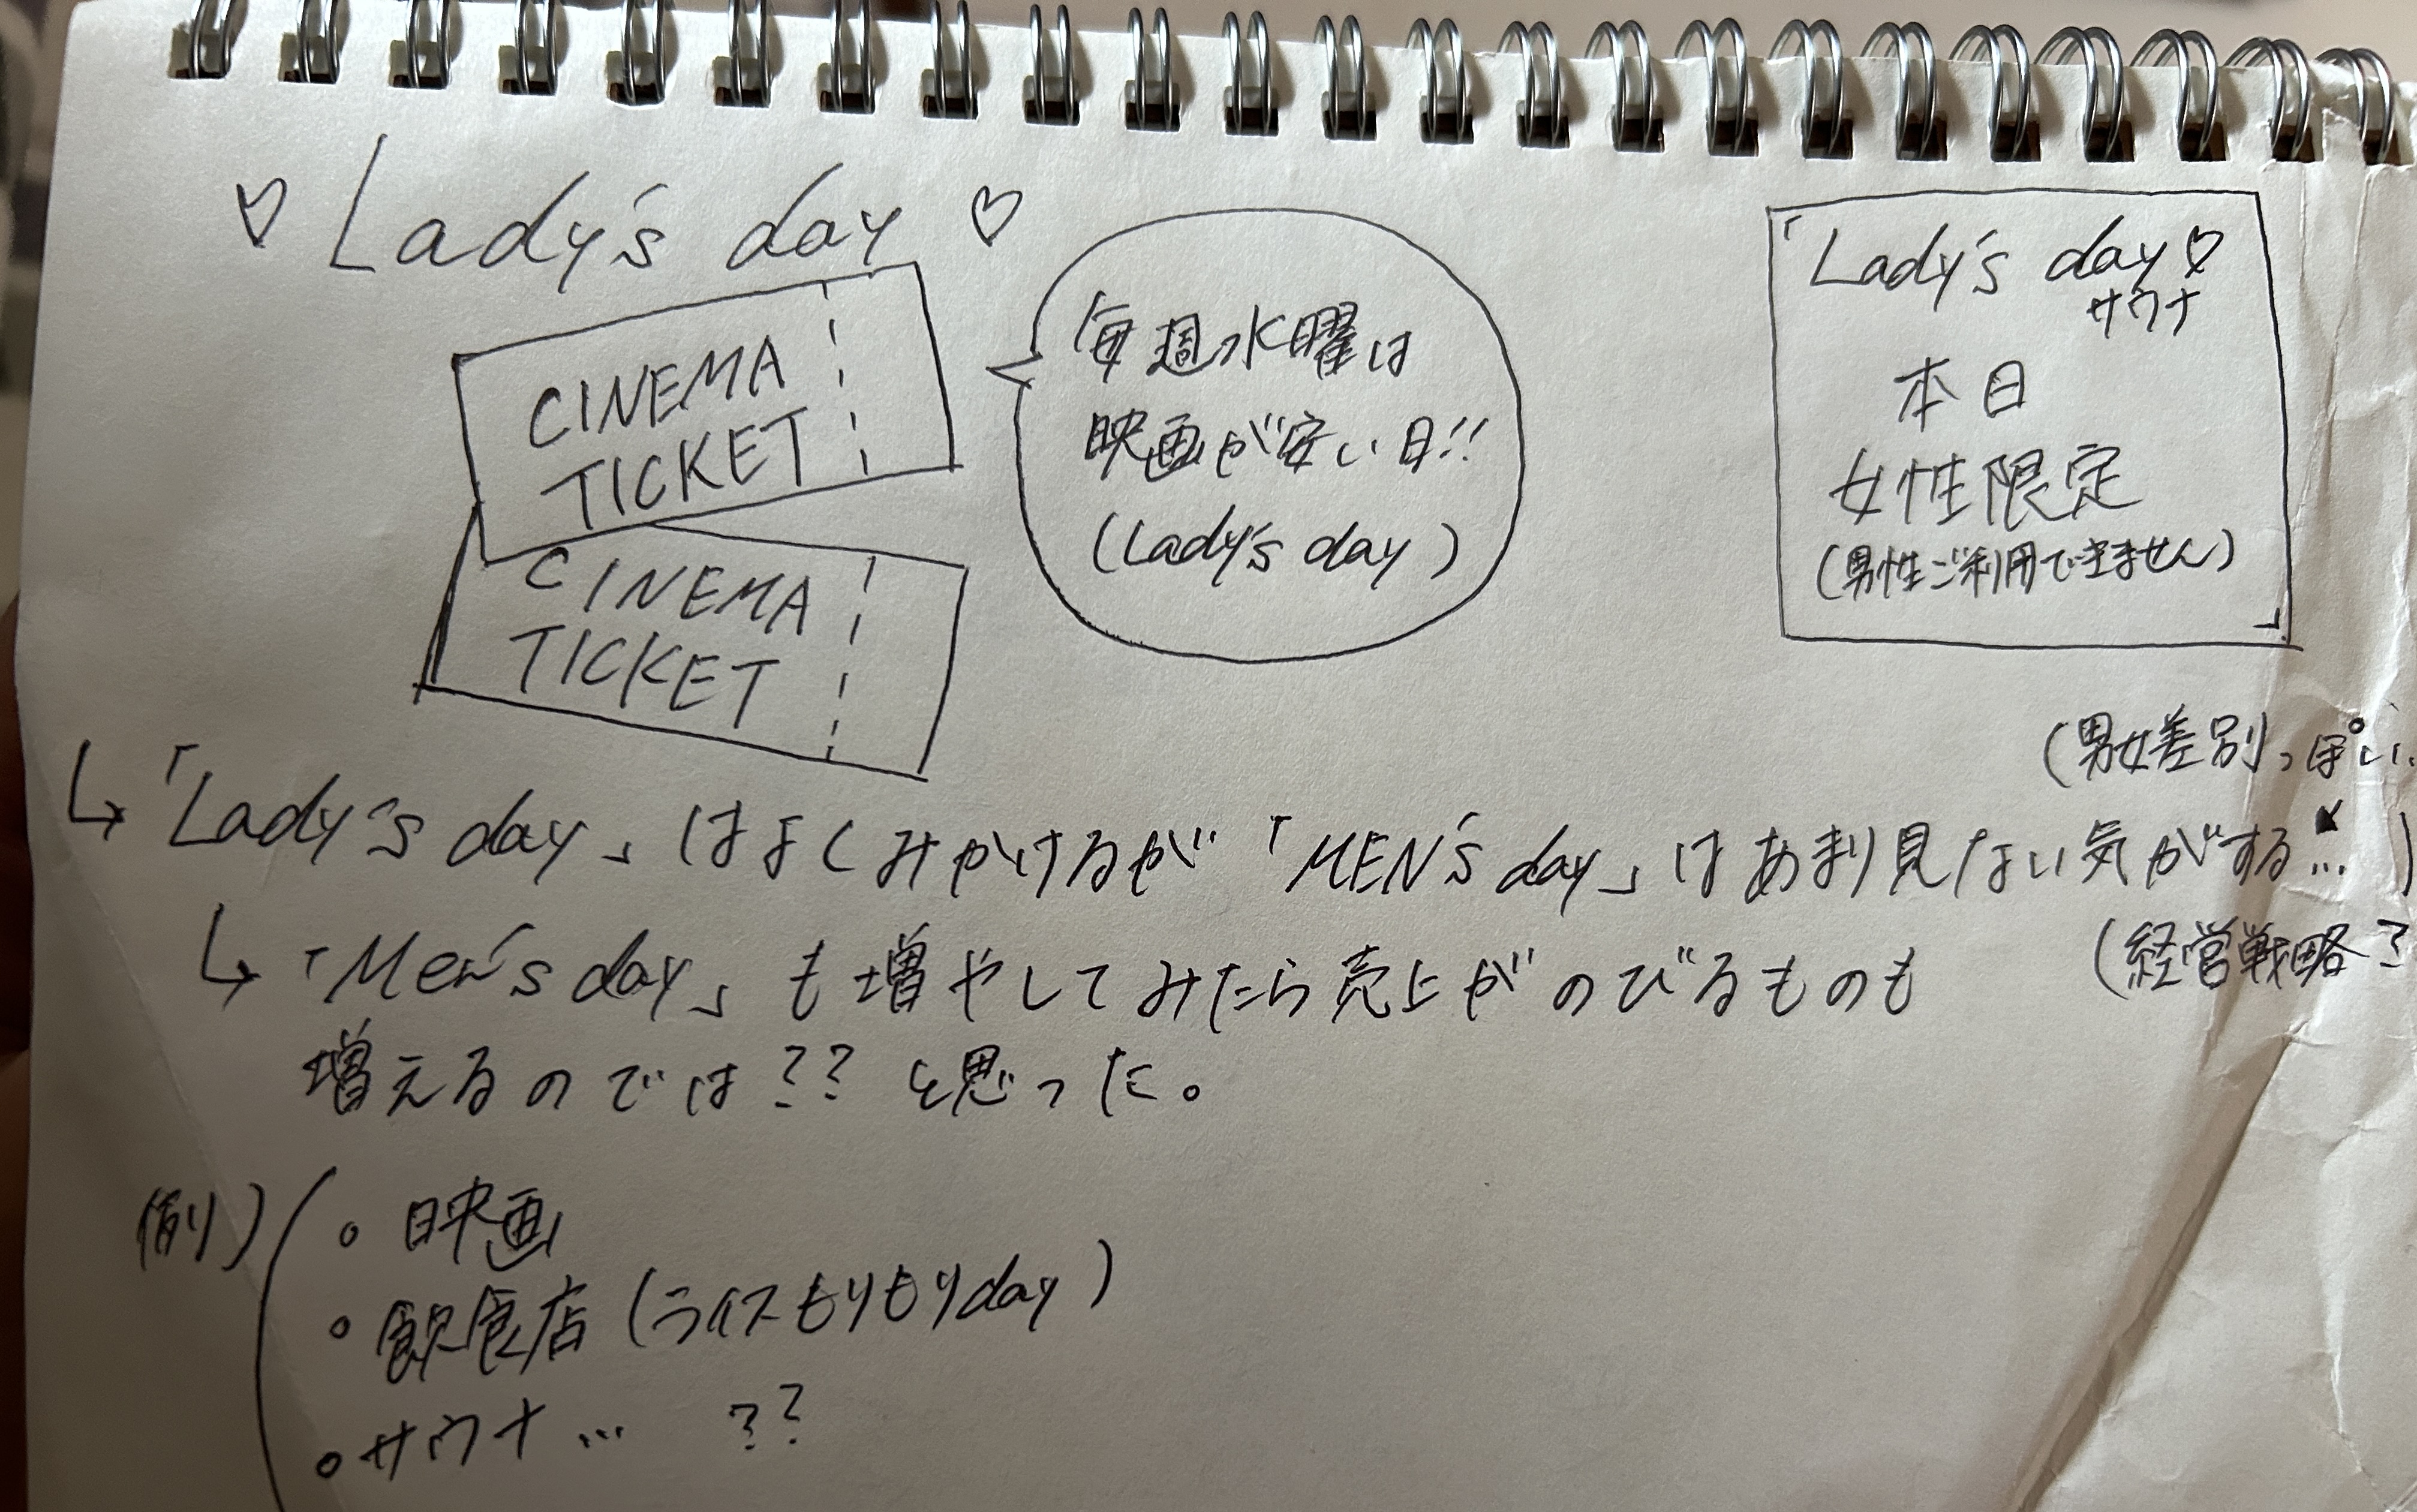 ♡ Lady's day ♡
CINEMA
TICKET
CINEMA
TICKET
毎週水曜は
映画が安い日!!
(Lady's day)
「Lady's day♡
サウナ
本日
女性限定
(男性ご利用できません)」
(男女差別っぽい…)
↳「Lady's day」はよくみかけるが「MEN's day」はあまり見ない気がする…
(経営戦略?
↳「Men's day」も増やしてみたら売上がのびるものも
増えるのでは?? と思った。
例)
・映画
・飲食店(ライスもりもりday)
・サウナ… ??